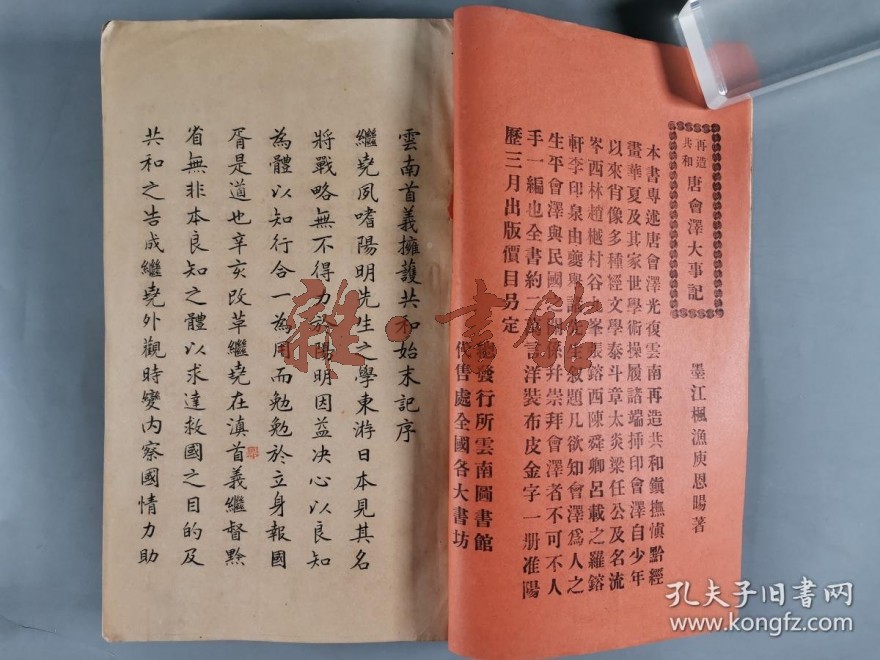 再造
共和
唐會澤大事記
墨江楓漁庾恩暘著
本書專述唐會澤光復雲南再造共和鎭撫滇黔經
畫華夏及其家世學術操履諸端揷印會澤自少年
以來肖像多種經文學泰斗章太炎梁任公及名流
岑西林趙樾村谷 峯張鎔西陳舜卿呂載之羅鎔
軒李印泉由夔舉諸先生敘題凡欲知會澤爲人之
生平會澤與民國之關係幷崇拜會澤者不可不人
手一編也全書約二萬言洋裝布皮金字一册准陽
歷三月出版價目另定
總發行所雲南圖書館
代售處全國各大書坊
雲南首義擁護共和始末記序
繼堯夙嗜陽明先生之學東游日本見其名
將戰略無不得力於陽明因益决心以良知
為體以知行合一為用而勉勉於立身報國
胥是道也辛亥改革繼堯在滇首義繼督黔
省無非本良知之體以求達救國之目的及
共和之告成繼堯外觀時變内察國情力助
雜·書館
孔夫子旧书网
www.kongfz.com